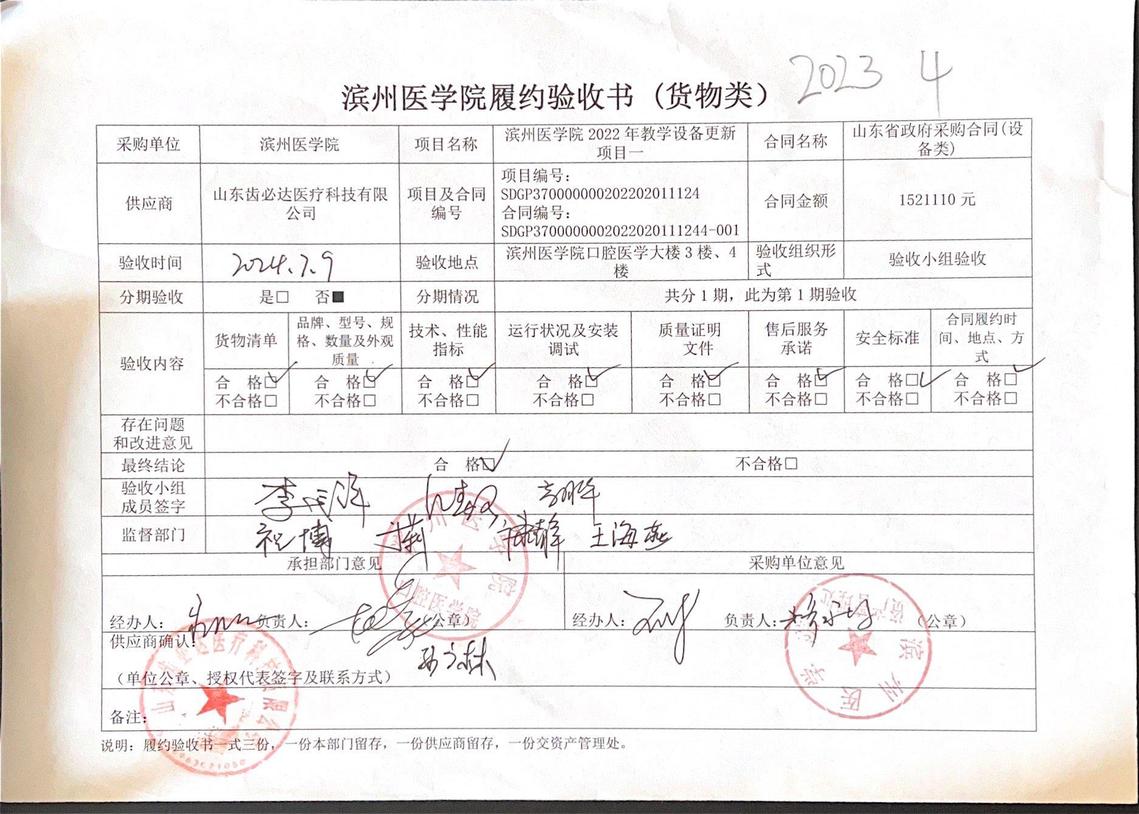 2023 4
滨州医学院履约验收书（货物类）
采购单位 滨州医学院 项目名称 滨州医学院 2022 年教学设备更新
项目一 合同名称 山东省政府采购合同(设
备类)
供应商 山东齿必达医疗科技有限
公司 项目及合同
编号 项目编号：
SDGP370000000202202011124
合同编号：
SDGP3700000002022020111244-001
合同金额 1521110 元
验收时间 2024.7.9 验收地点 滨州医学院口腔医学大楼 3 楼、4
楼 验收组织形
式 验收小组验收
分期验收 是□ 否■ 分期情况 共分 1 期，此为第 1 期验收
验收内容
货物清单
品牌、型号、规
格、数量及外观
质量
技术、性能
指标
运行状况及安装
调试
质量证明
文件
售后服务
承诺
安全标准
合同履约时
间、地点、方
式
合 格□✓ 合 格□✓ 合 格□✓ 合 格□✓ 合 格□✓ 合 格□✓ 合 格□✓ 合 格□✓
不合格□ 不合格□ 不合格□ 不合格□ 不合格□ 不合格□ 不合格□ 不合格□
存在问题
和改进意见
最终结论 合 格□✓ 不合格□
验收小组
成员签字
监督部门 祝博 王海燕
承担部门意见 采购单位意见
经办人： 负责人： （公章） 经办人： 负责人： （公章）
供应商确认：
（单位公章、授权代表签字及联系方式）
备注：
说明：履约验收书一式三份，一份本部门留存，一份供应商留存，一份交资产管理处。